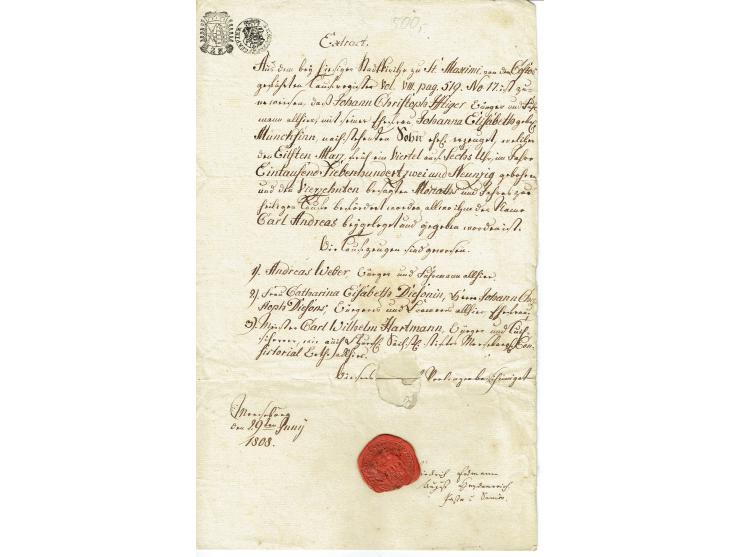 500,
Extract.
Aus dem bey hiesiger Stadtkirche zu St. Maximi, von den Custos
geführten Taufregister Vol. VIII. pag. 519. No 17. ist zu
erweisen, daß Johann Christoph Ifliger Bürger und Fuhr-
mann allhier, mit seiner Ehefrau Johanna Elisabeth geb.
nachstehenden Sohn ehel. erzeuget, welcher
den Eilften Marz, früh ein Viertel nach Sechs Uhr, im Jahre
Eintausend Siebenhundert zwei und Neunzig gebohren
und den Vierzehnten besagten Monaths und Jahres zur
heiligen Taufe befördert worden, allwo ihm der Name
Carl Andreas beygeleget und gegeben worden ist.
Die Taufzeugen sind gewesen.
1). Andreas Weber Bürger und Fuhrmann allhier.
2). Frau Catharina Elisabeth Diesonin, Herrn Johann Chri-
stoph Diesons, Bürgers und Brauers allhier Ehefrau,
3). Meister Carl Wilhelm Hartmann, Bürger und
wie auch Sächs. Stifts Merseburg. Con-
sistorial allhier.
Dieses Verlangen bescheiniget
Merseburg
den 29ten Juny
1808.
Friedrich Erdmann
August Heydenreich